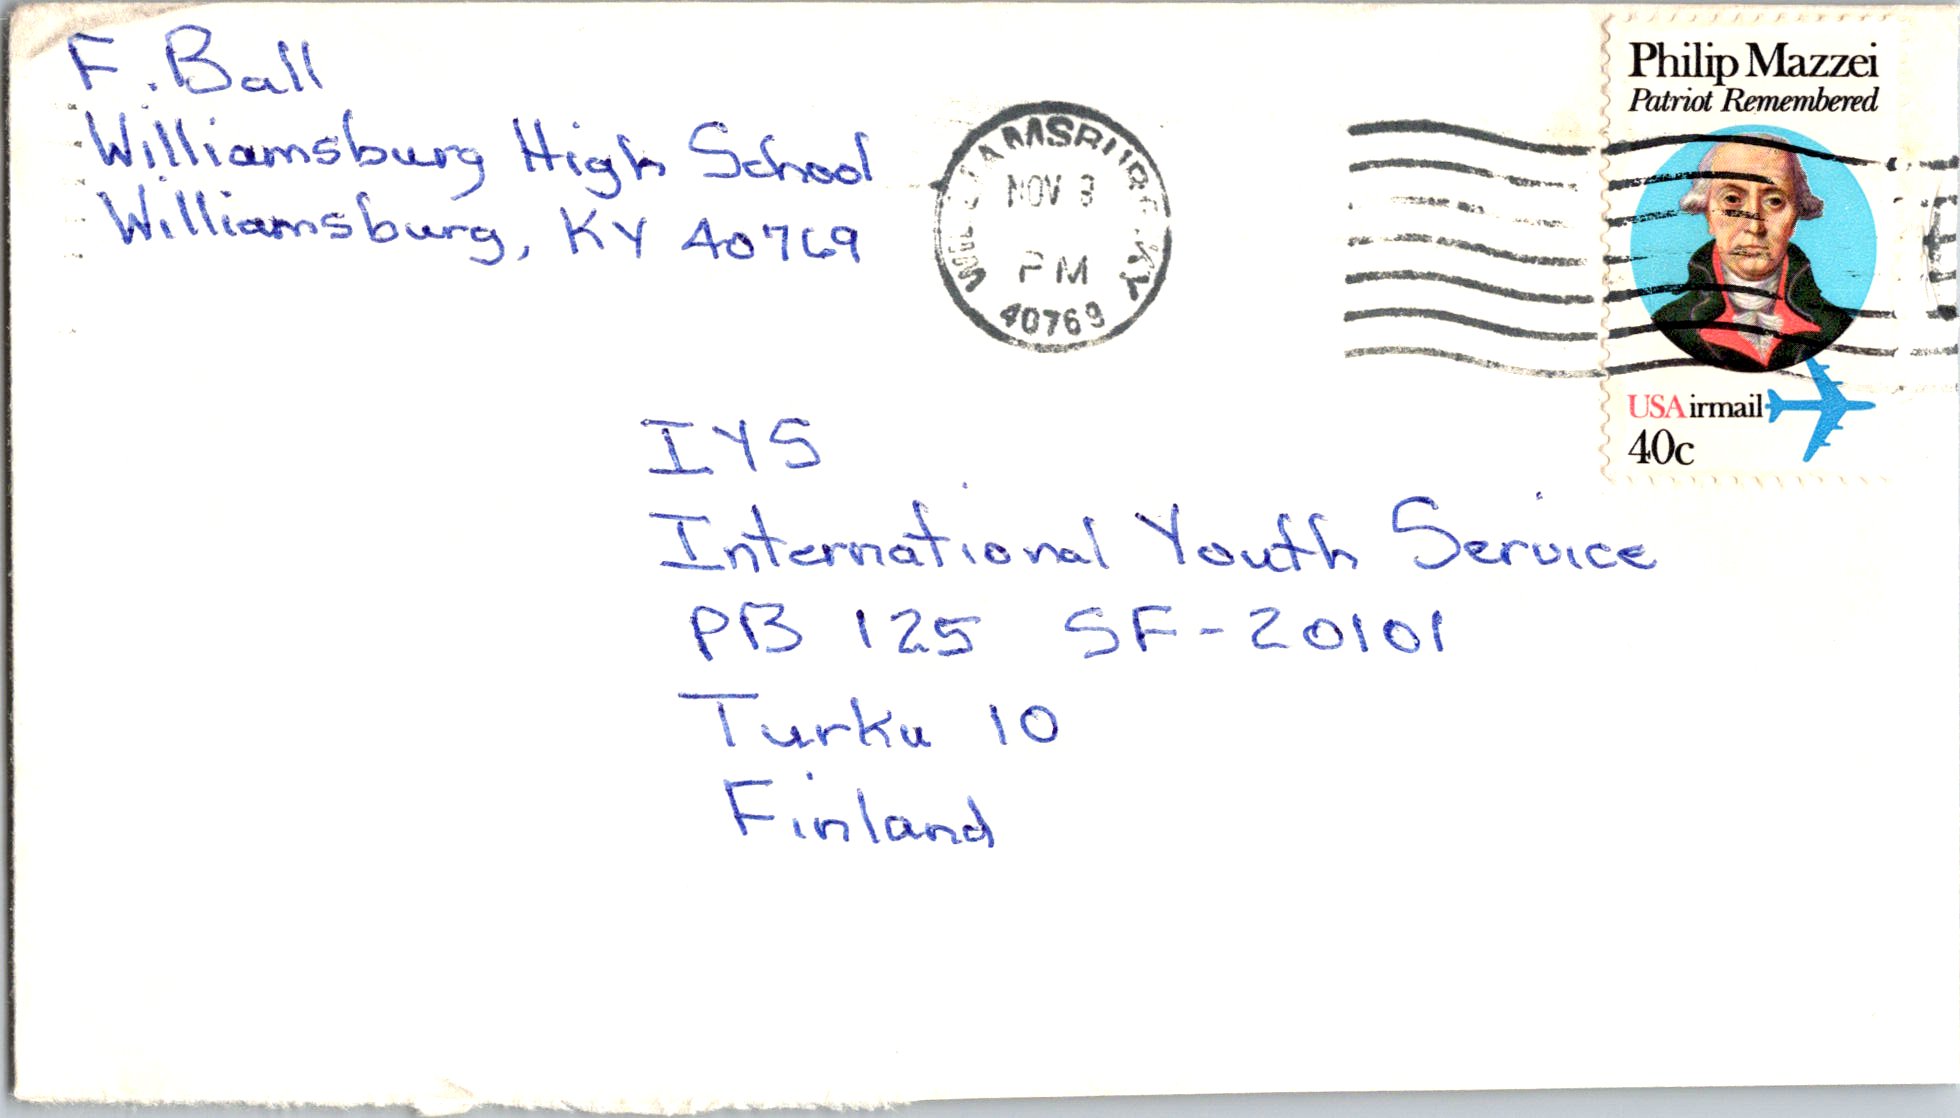 F. Ball
Williamsburg High School
Williamsburg, KY 40769
NOV 3
PM
40769
Philip Mazzei
Patriot Remembered
USAirmail
40c
IYS
International Youth Service
PB 125 SF-20101
Turku 10
Finland